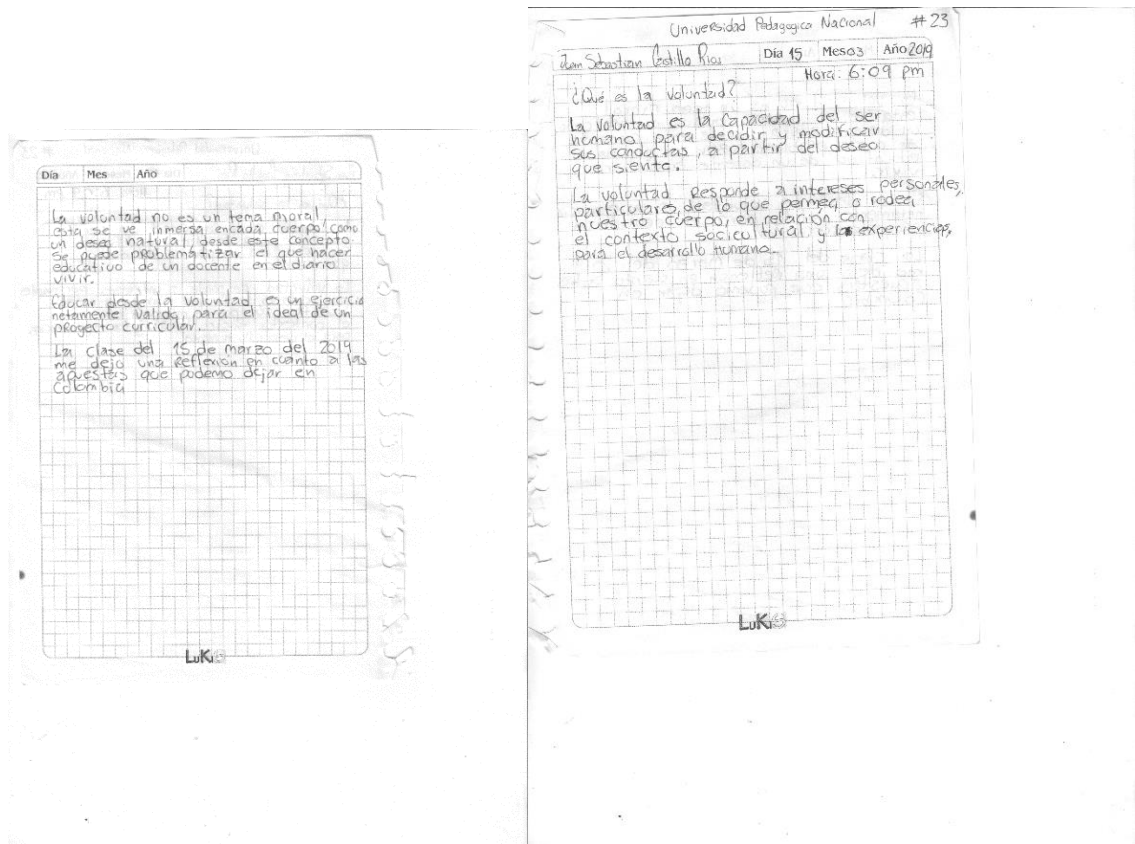 Día Mes Año
La voluntad no es un tema moral,
esta se ve inmersa encada cuerpo como
un deseo natural, desde este concepto
se puede problematizar el que hacer
educativo de un docente en el diario
vivir.
Educar desde la voluntad, es un ejercicio
netamente valido, para el ideal de un
proyecto curricular.
La clase del 15 de marzo del 2019
me dejo una reflexion en cuanto a las
apuestas que podemo dejar en
Colombia
LuKi
Universidad Pedagogica Nacional #23
Juan Sebastian Castillo Rios Día 15 Mes03 Año2019
Hora: 6:09 pm
¿Qué es la voluntad?
La voluntad es la capacidad del ser
humano, para decidir y modificar
sus conductas, a partir del deseo
que siente.
La voluntad Responde a intereses personales,
particulares, de lo que permea o rodea
nuestro cuerpo, en relación con
el contexto socicultural y las experiencias,
para el desarrollo humano.
LuKi